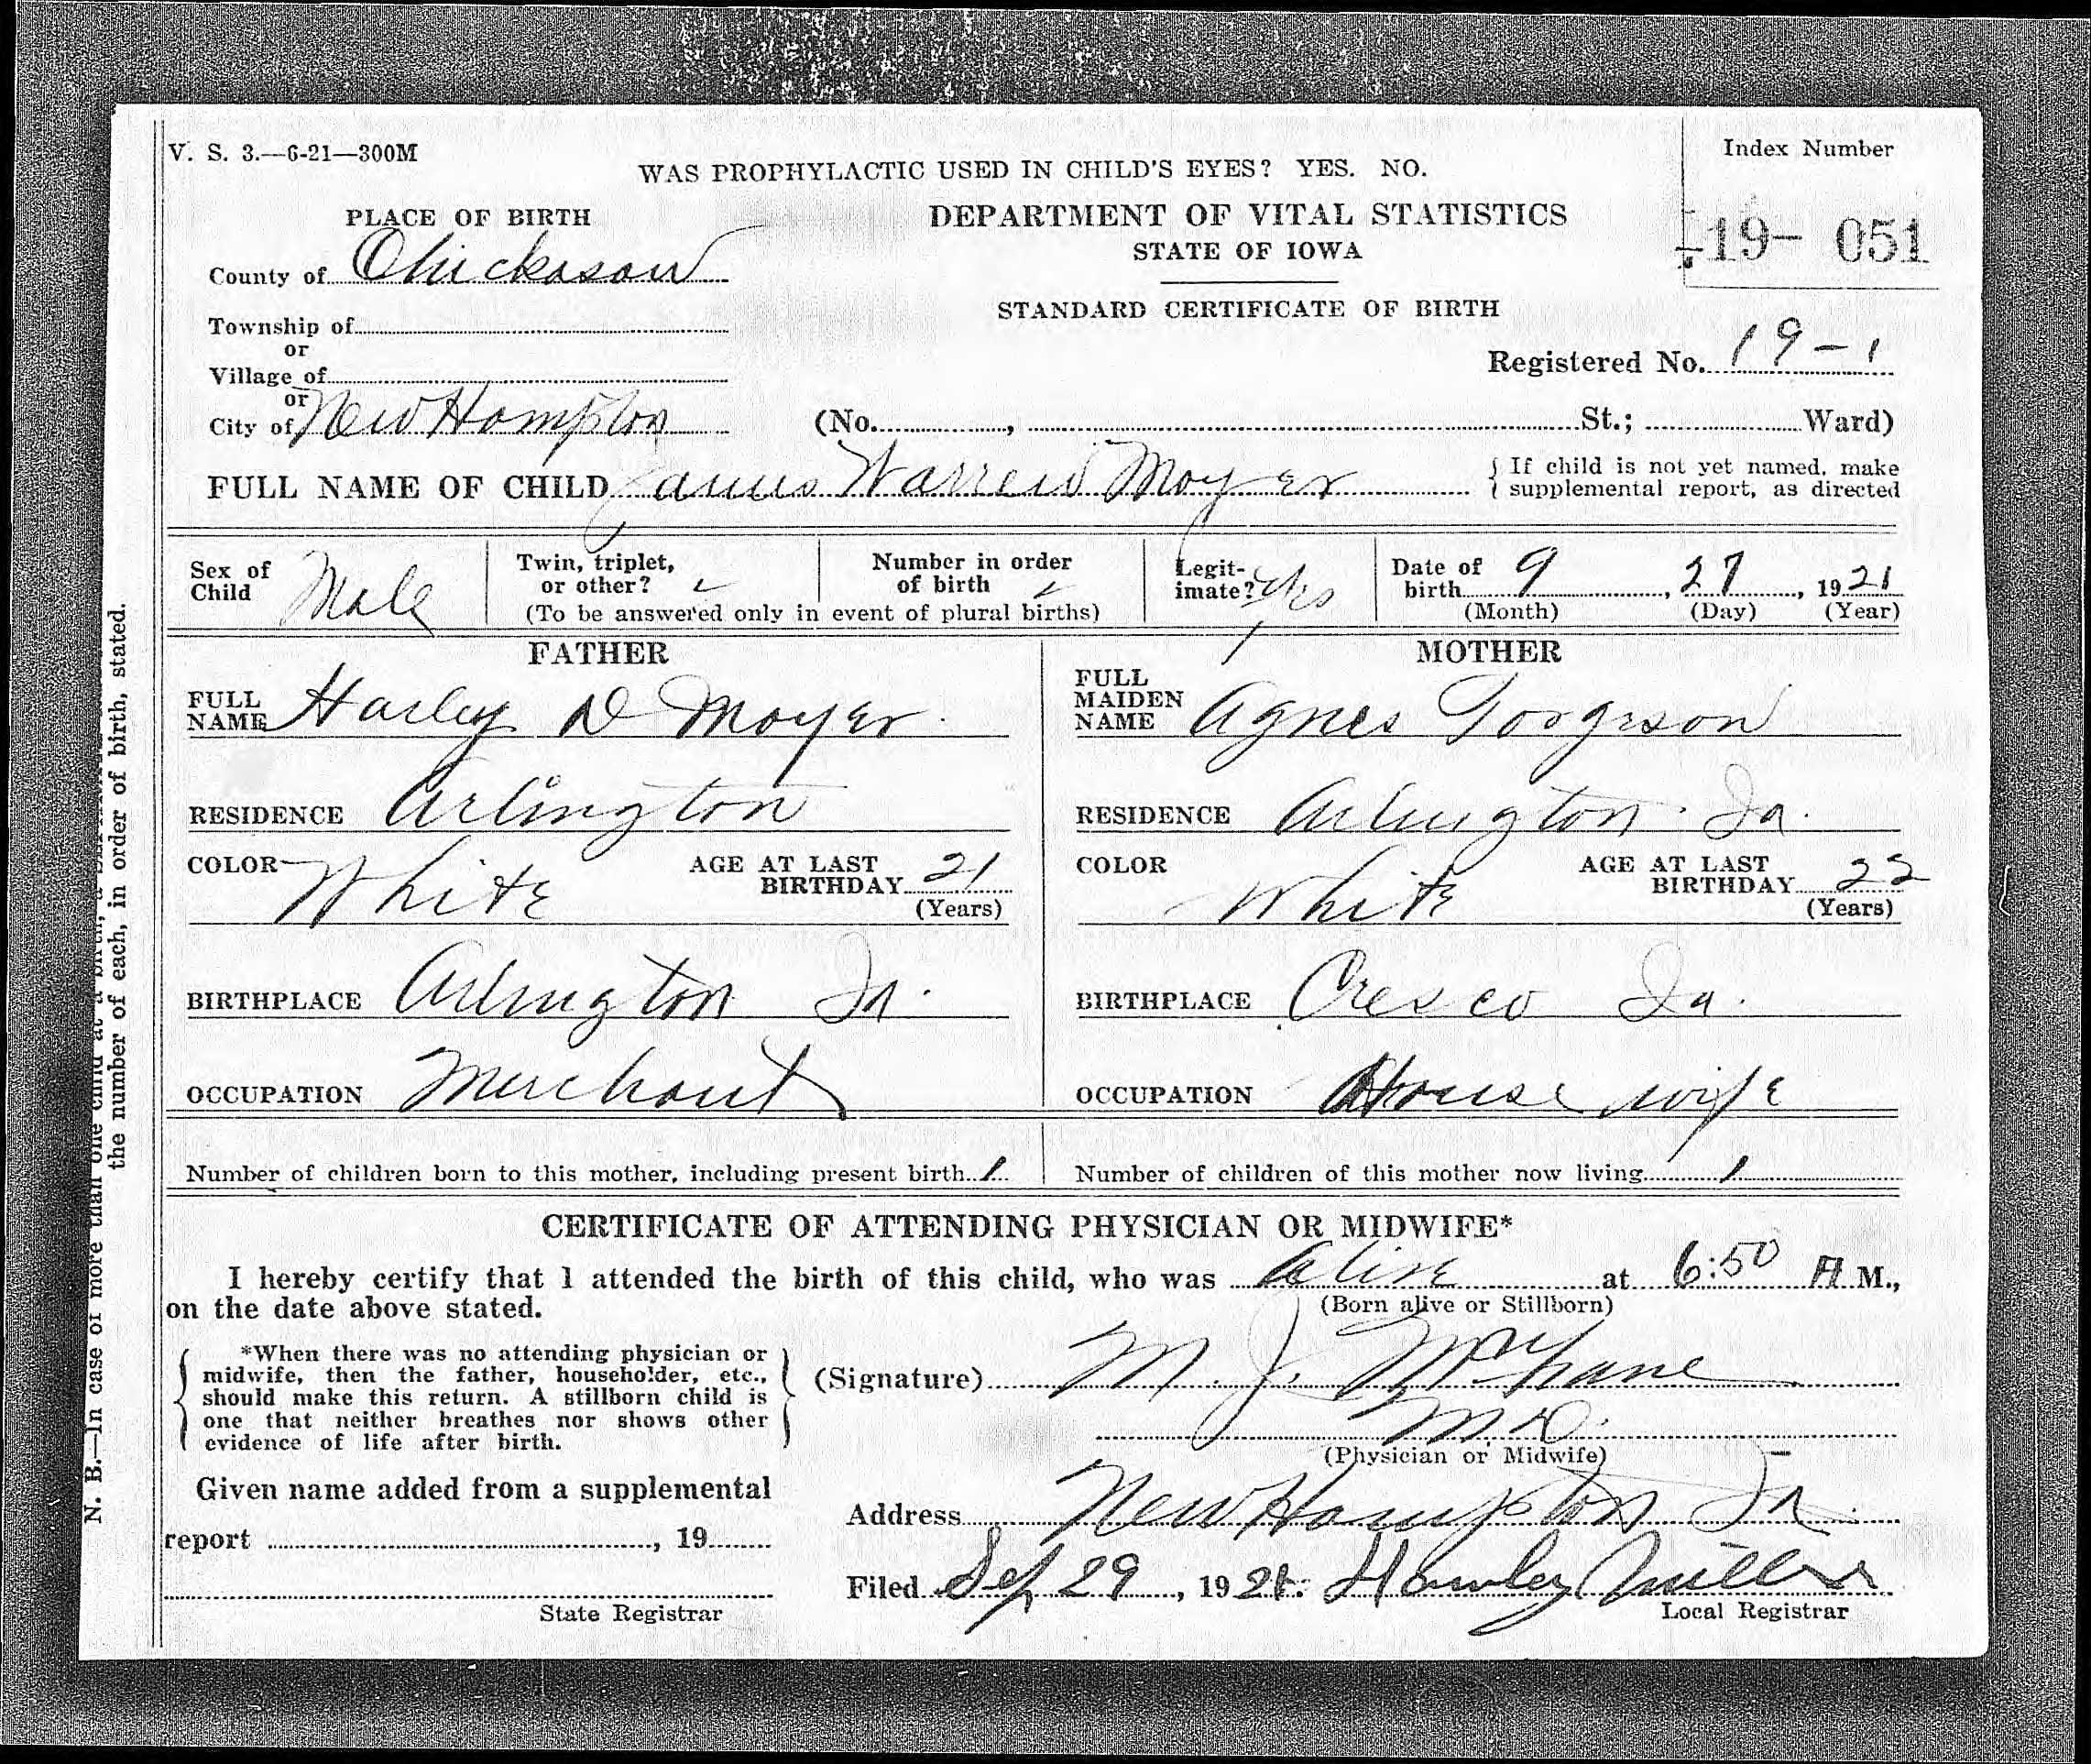 V. S. 3.—6-21—300M
WAS PROPHYLACTIC USED IN CHILD'S EYES? YES. NO.
Index Number
19- 051
PLACE OF BIRTH
DEPARTMENT OF VITAL STATISTICS
STATE OF IOWA
STANDARD CERTIFICATE OF BIRTH
County of Chickasaw
Township of
or
Village of
or
City of New Hampton
Registered No. 19-1
(No. , St.; Ward)
FULL NAME OF CHILD James Warren Moyer
{ If child is not yet named, make
supplemental report, as directed
Sex of Child Male
Twin, triplet, or other?
Number in order of birth
(To be answered only in event of plural births)
Legit-imate? Yes
Date of birth 9, 27, 1921
(Month) (Day) (Year)
FATHER
FULL NAME Harley D Moyer
RESIDENCE Arlington
COLOR White AGE AT LAST BIRTHDAY 21
(Years)
BIRTHPLACE Arlington Ia.
OCCUPATION Merchant
MOTHER
FULL MAIDEN NAME Agnes Torgrson
RESIDENCE Arlington Ia.
COLOR White AGE AT LAST BIRTHDAY 22
(Years)
BIRTHPLACE Cresco Ia.
OCCUPATION House wife
Number of children born to this mother, including present birth 1
Number of children of this mother now living 1
CERTIFICATE OF ATTENDING PHYSICIAN OR MIDWIFE*
I hereby certify that I attended the birth of this child, who was alive at 6:50 A M.,
(Born alive or Stillborn)
on the date above stated.
*When there was no attending physician or
midwife, then the father, householder, etc.,
should make this return. A stillborn child is
one that neither breathes nor shows other
evidence of life after birth.
(Signature) M. J. McGrane
M.D.
(Physician or Midwife)
Given name added from a supplemental
report , 19
State Registrar
Address New Hampton Ia.
Filed Sep 29, 1921. Hawley Miller
Local Registrar
N. B.—In case of more than one child at a birth, a
the number of each, in order of birth, stated.